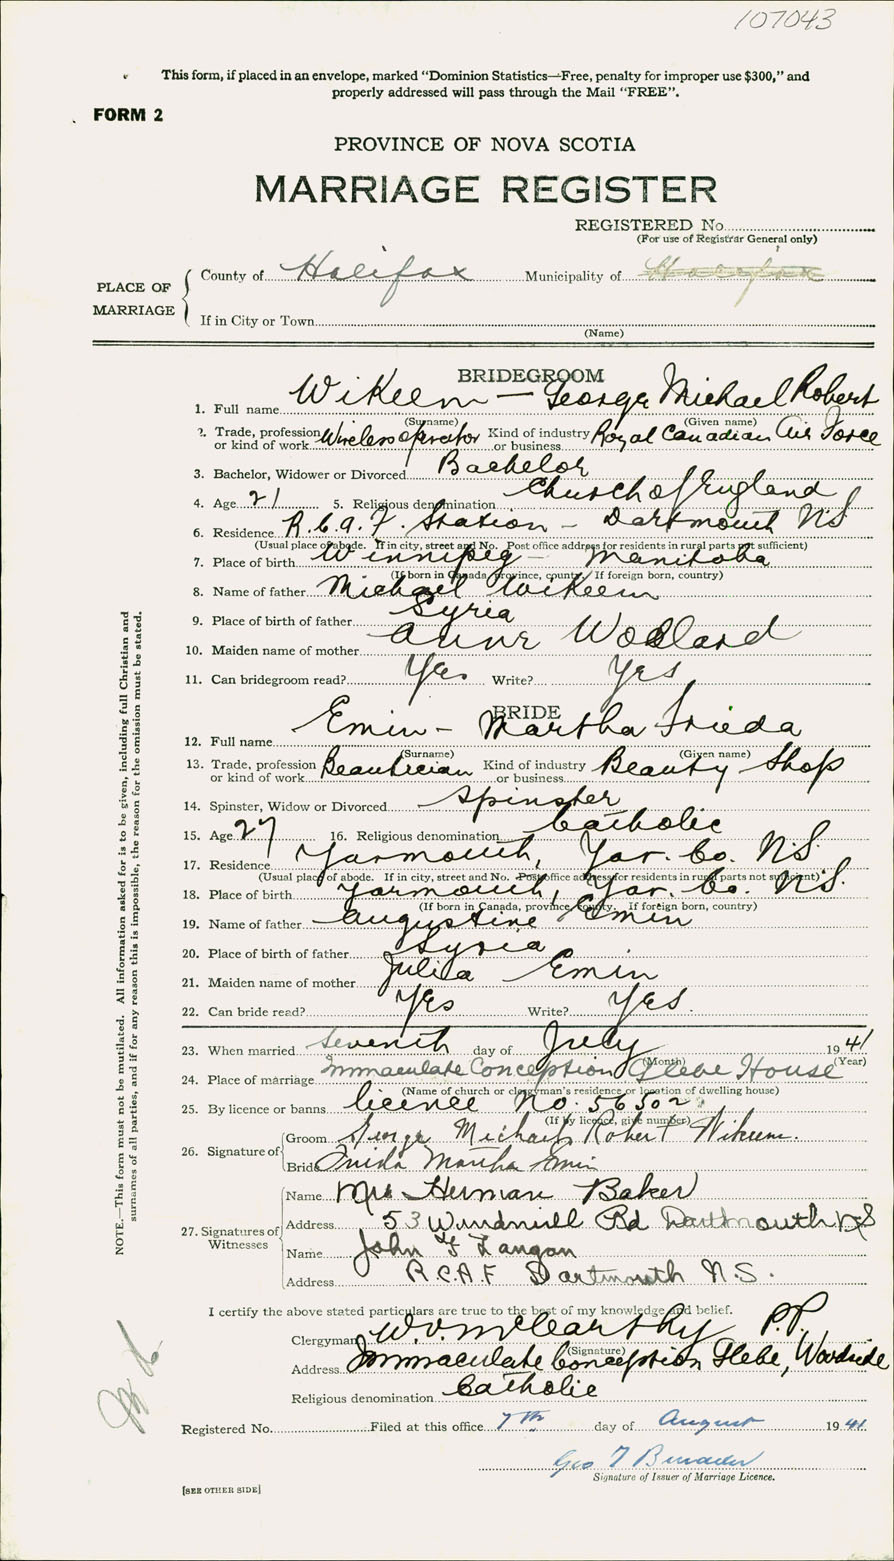 107043
This form, if placed in an envelope, marked “Dominion Statistics—Free, penalty for improper use $300,” and
properly addressed will pass through the Mail “FREE”.
FORM 2
PROVINCE OF NOVA SCOTIA
MARRIAGE REGISTER
REGISTERED No.
(For use of Registrar General only)
PLACE OF MARRIAGE
County of Halifax Municipality of Halifax
If in City or Town
(Name)
BRIDEGROOM
1. Full name Wikeem — George Michael Robert
(Surname) (Given name)
2. Trade, profession or kind of work Wireless operator Kind of industry or business Royal Canadian Air Force
3. Bachelor, Widower or Divorced Bachelor
4. Age 21 5. Religious denomination Church of England
6. Residence R.C.A.F. Station - Dartmouth NS
(Usual place of abode. If in city, street and No. Post office address for residents in rural parts not sufficient)
7. Place of birth Winnipeg - Manitoba
(If born in Canada, province, county. If foreign born, country)
8. Name of father Michael Wikeem
9. Place of birth of father Syria
10. Maiden name of mother Anne
11. Can bridegroom read? Yes Write? Yes
BRIDE
12. Full name Emin - Martha Frieda
(Surname) (Given name)
13. Trade, profession or kind of work Beautician Kind of industry or business Beauty Shop
14. Spinster, Widow or Divorced Spinster
15. Age 27 16. Religious denomination Catholic
17. Residence Yarmouth, Yar. Co. N.S.
(Usual place of abode. If in city, street and No. Post office address for residents in rural parts not sufficient)
18. Place of birth Yarmouth, Yar. Co. N.S.
(If born in Canada, province, county. If foreign born, country)
19. Name of father Augustine Emin
20. Place of birth of father Syria
21. Maiden name of mother Julia Emin
22. Can bride read? Yes Write? Yes.
23. When married Seventh day of July 1941
(Month) (Year)
24. Place of marriage Immaculate Conception Glebe House
(Name of church or clergyman's residence or location of dwelling house)
25. By licence or banns licence No. 56502
(If by licence, give number)
26. Signature of
Groom George Michael Robert Wikeem.
Bride Frieda Martha Emin
27. Signatures of Witnesses
Name Mrs Herman Baker
Address 53 Windmill Rd Dartmouth NS
Name John F Langan
Address R.C.A.F Dartmouth N.S.
I certify the above stated particulars are true to the best of my knowledge and belief.
Clergyman W. McCarthy P.P.
(Signature)
Address Immaculate Conception Glebe, Woodside
Religious denomination Catholic
Registered No. Filed at this office 7th day of August 1941.
Geo
Signature of Issuer of Marriage Licence.
[SEE OTHER SIDE]
NOTE.—This form must not be mutilated. All information asked for is to be given, including full Christian and
surnames of all parties, and if for any reason this is impossible, the reason for the omission must be stated.